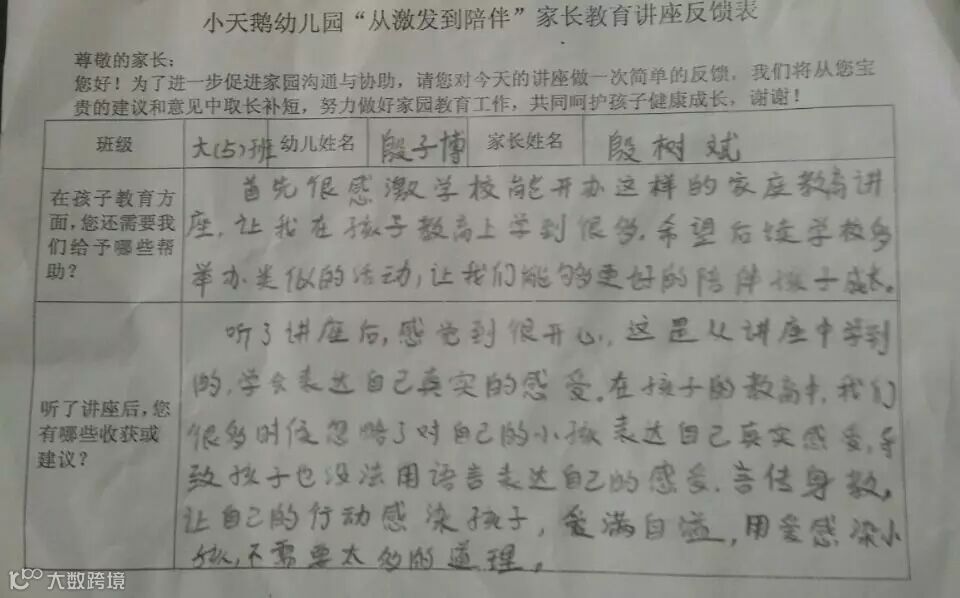 小天鹅幼儿园“从激发到陪伴”家长教育讲座反馈表
尊敬的家长：
您好！为了进一步促进家园沟通与协助，请您对今天的讲座做一次简单的反馈，我们将从您宝
贵的建议和意见中取长补短，努力做好家园教育工作，共同呵护孩子健康成长，谢谢！
班级 大(5)班 幼儿姓名 殷子博 家长姓名 殷树斌
在孩子教育方
面，您还需要我
们给予哪些帮
助？
首先很感激学校能开办这样的家庭教育讲
座，让我在孩子教育上学到很多，希望后续学校多
举办类似的活动，让我们能够更好的陪伴孩子成长。
听了讲座后，您
有哪些收获或
建议？
听了讲座后，感觉到很开心，这是从讲座中学到
的，学会表达自己真实的感受。在孩子的教育中，我们
很多时候忽略了对自己的小孩表达自己真实感受，导
致孩子也没法用语言表达自己的感受，言传身教，
让自己的行动感染孩子，爱满自溢，用爱感染小
孩，不需要太多的道理。
大数跨境